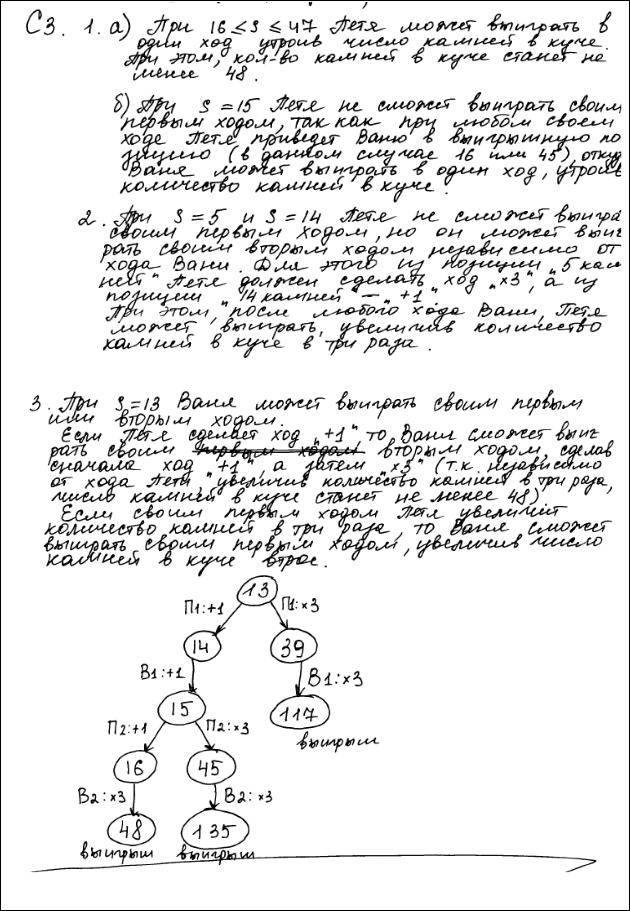 С3. 1. а) При 16 ≤ S ≤ 47 Петя может выиграть в
один ход утроив число камней в куче.
При этом, кол-во камней в куче станет не
менее 48.
б) При S = 15 Петя не сможет выиграть своим
первым ходом, так как при любом своем
ходе Петя приведет Ваню в выигрышную по
зицию (в данном случае 16 или 45), откуд
Ваня может выиграть в один ход, утроив
количество камней в куче.
2. При S = 5 и S = 14 Петя не сможет выигра
своим первым ходом, но он может выиг
рать своим вторым ходом независимо от
хода Вани. Для этого из позиции „5 кам
ней" Петя должен сделать ход „×3", а из
позиции „14 камней" — „+1".
При этом, после любого хода Вани, Петя
может выиграть, увеличив количество
камней в куче в три раза.
3. При S = 13 Ваня может выиграть своим первым
или вторым ходом.
Если Петя сделает ход „+1" то Ваня сможет выиг
рать своим первым ходом вторым ходом, сделав
сначала ход „+1", а затем „×3" (т.к. независимо
от хода Пети увеличив количество камней в три раза,
число камней в куче станет не менее 48)
Если своим первым ходом Петя увеличит
количество камней в три раза, то Ваня сможет
выиграть своим первым ходом, увеличив число
камней в куче втрое.
13
П1:+1 П1:×3
14 39
В1:+1 В1:×3
15 117
П2:+1 П2:×3 выигрыш
16 45
В2:×3 В2:×3
48 135
выигрыш выигрыш